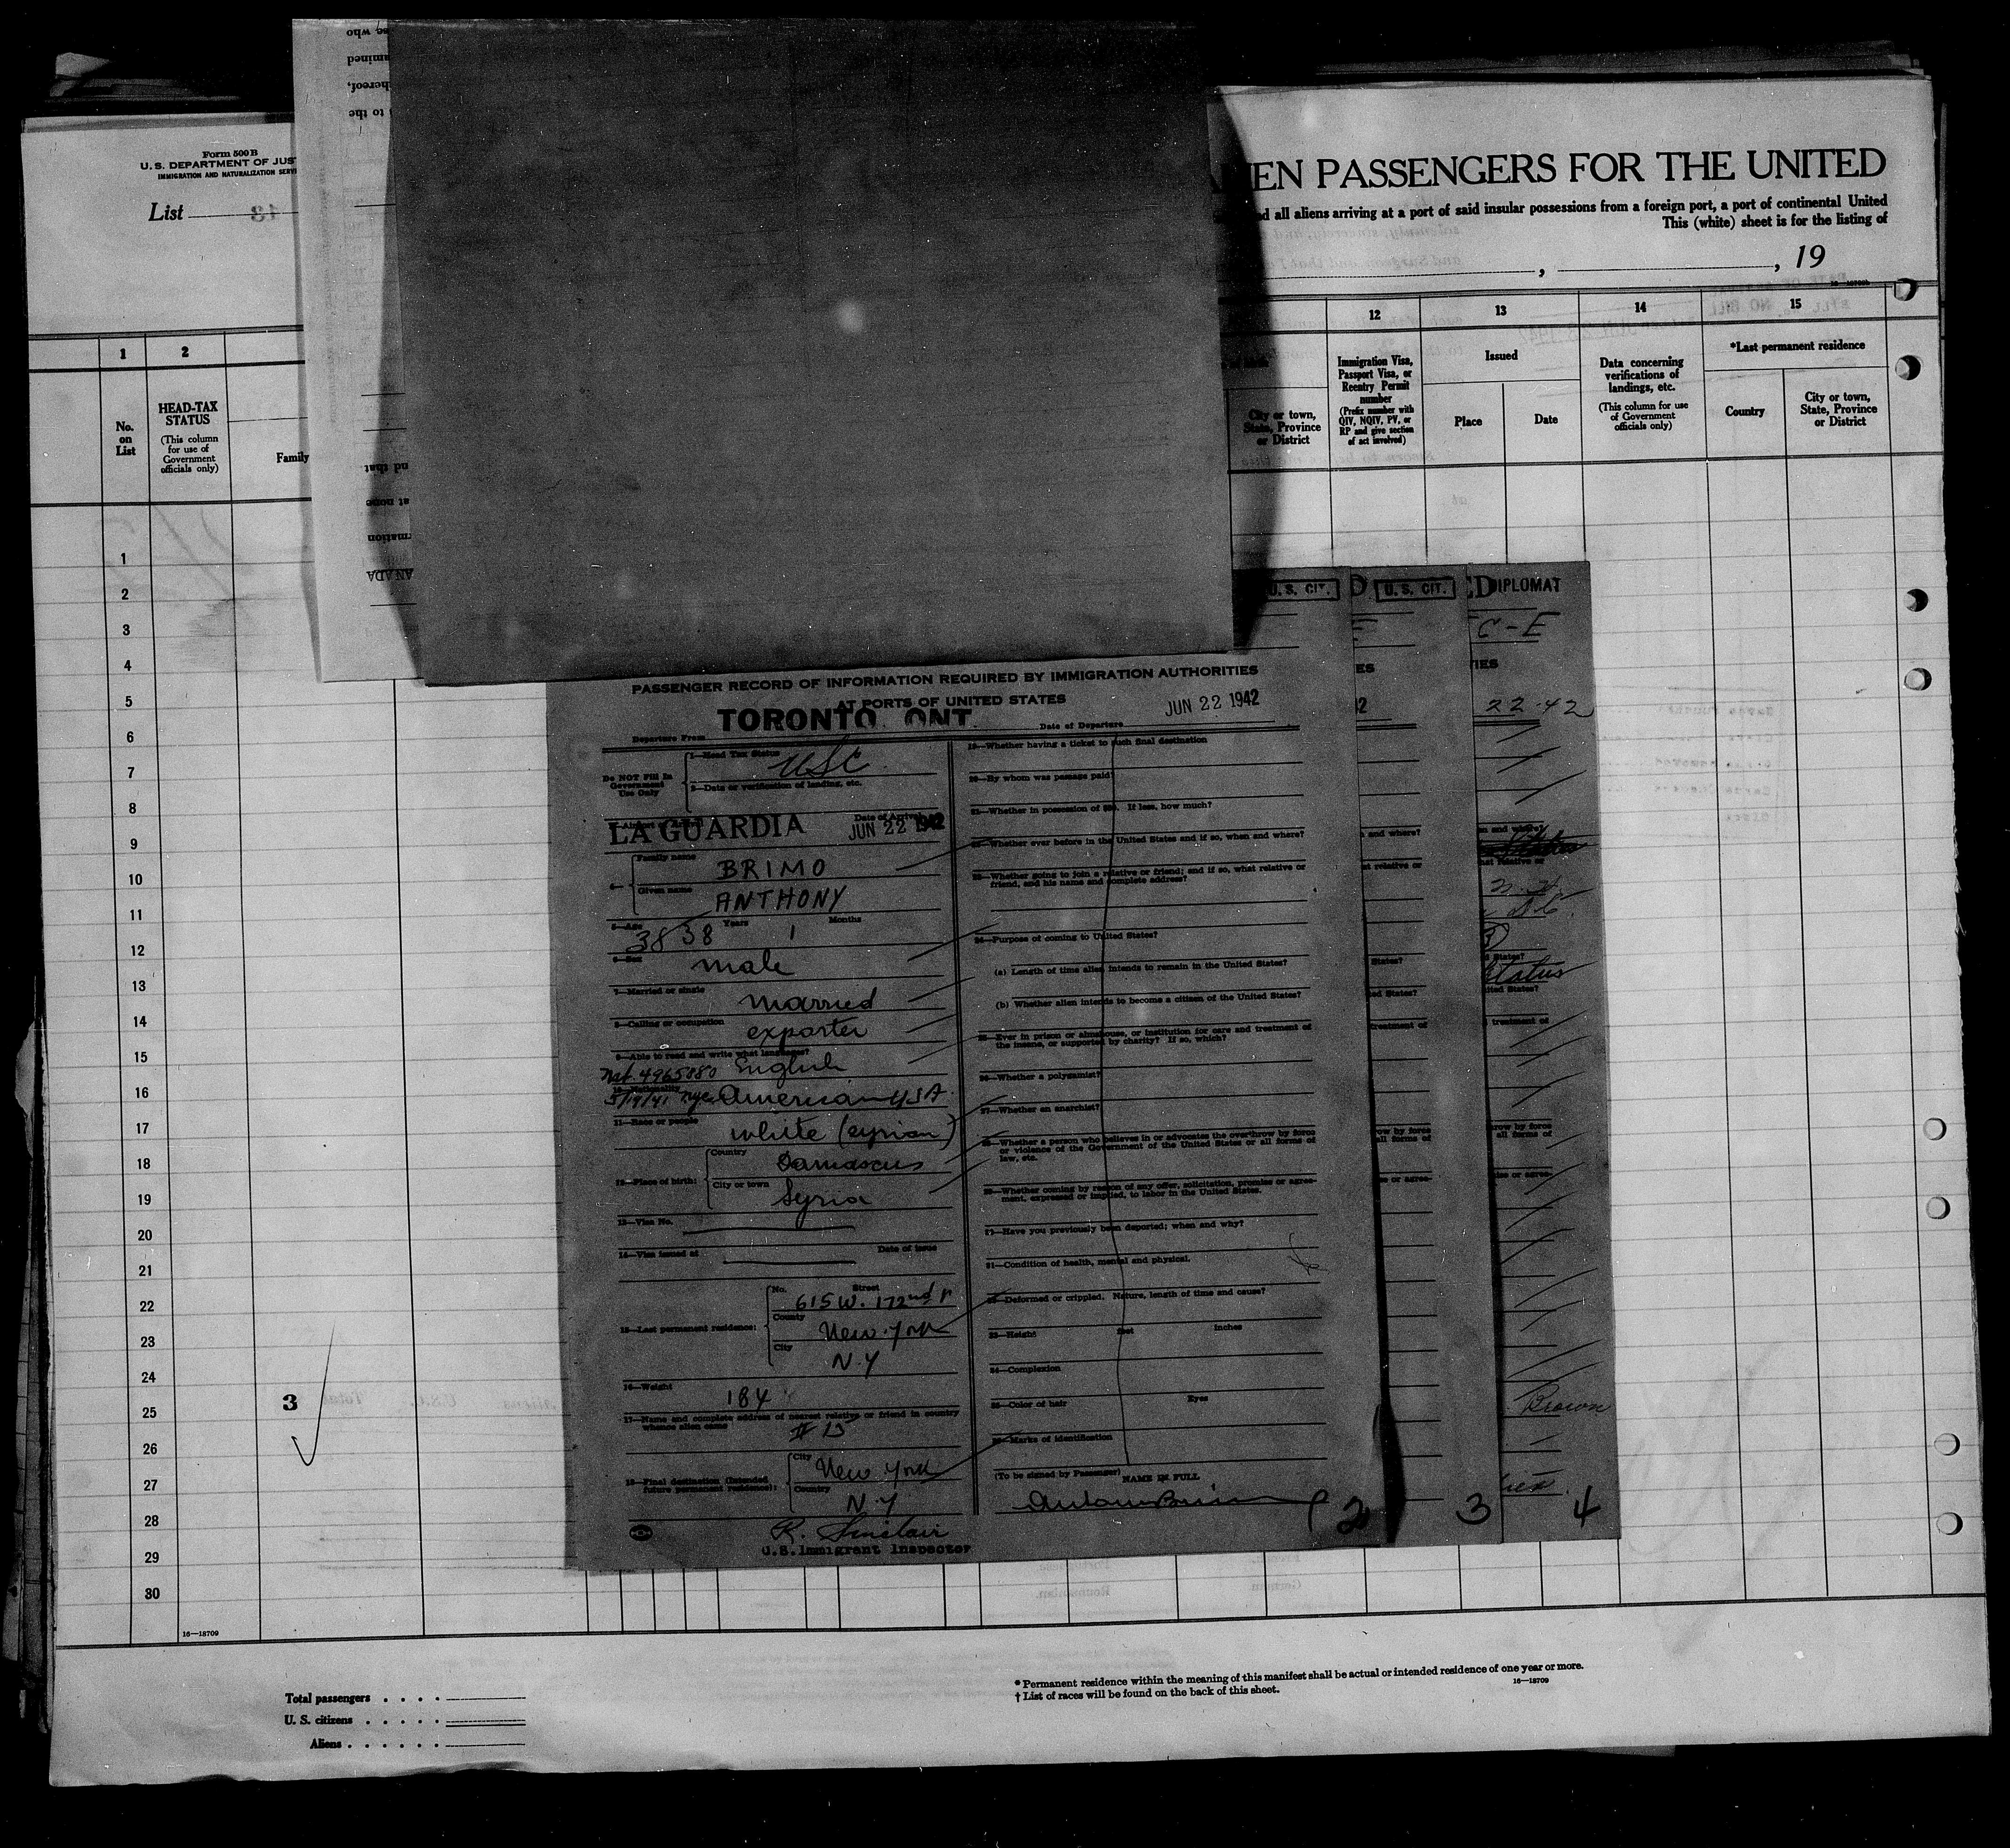 Form 500 B
U. S. DEPARTMENT OF JUS
IMMIGRATION AND NATURALIZATION SERVI
List
EN PASSENGERS FOR THE UNITED
d all aliens arriving at a port of said insular possessions from a foreign port, a port of continental United
This (white) sheet is for the listing of
, , 19
1
2
12
13
14
15
No. on List
HEAD-TAX STATUS
(This column for use of Government officials only)
Family
City or town, State, Province or District
Immigration Visa, Passport Visa, or Reentry Permit number
(Prefix number with QIV, NQIV, PV, or RP and give section of act involved)
Issued
Place
Date
Data concerning verifications of landings, etc.
(This column for use of Government officials only)
*Last permanent residence
Country
City or town, State, Province or District
1
2
3
4
5
6
7
8
9
10
11
12
13
14
15
16
17
18
19
20
21
22
23
24
25
26
27
28
29
30
3
U. S. CIT.
U. S. CIT.
DIPLOMAT
C-E
22-42
PASSENGER RECORD OF INFORMATION REQUIRED BY IMMIGRATION AUTHORITIES
AT PORTS OF UNITED STATES
Departure From TORONTO, ONT. Date of Departure JUN 22 1942
Do NOT Fill In Government Use Only
1—Head Tax Status USC
2—Date or verification of landing, etc.
LA GUARDIA Date of Arrival JUN 22 1942
Family name BRIMO
Given name ANTHONY
5—Age 38 38 Years 1 Months
6—Sex male
7—Married or single married
8—Calling or occupation exporter
9—Able to read and write what languages? English
Nat. 4965880
10—Nationality American USA
5/19/41 nyc
11—Race or people white (syrian)
12—Place of birth: Country Damascus
City or town Syria
13—Visa No.
14—Visa issued at Date of issue
15—Last permanent residence: No. Street 615 W. 172nd
County New York
City N.Y
16—Weight 184
17—Name and complete address of nearest relative or friend in country whence alien came
# 15
18—Final destination (Intended future permanent residence): City New York
Country N.Y
R. Sinclair
U.S. Immigrant Inspector
19—Whether having a ticket to such final destination
20—By whom was passage paid?
21—Whether in possession of $50. If less, how much?
22—Whether ever before in the United States and if so, when and where?
23—Whether going to join a relative or friend; and if so, what relative or friend, and his name and complete address?
24—Purpose of coming to United States?
(a) Length of time alien intends to remain in the United States?
(b) Whether alien intends to become a citizen of the United States?
25—Ever in prison or almshouse, or institution for care and treatment of the insane, or supported by charity? If so, which?
26—Whether a polygamist?
27—Whether an anarchist?
28—Whether a person who believes in or advocates the overthrow by force or violence of the Government of the United States or all forms of law, etc.
29—Whether coming by reason of any offer, solicitation, promise or agreement, expressed or implied, to labor in the United States.
Have you previously been deported; when and why?
31—Condition of health, mental and physical.
32—Deformed or crippled. Nature, length of time and cause?
33—Height feet inches
34—Complexion
35—Color of hair Eyes
36—Marks of identification
(To be signed by Passenger) NAME IN FULL
Brown
2
3
4
16—18709
Total passengers . . . .
U. S. citizens . . . . .
Aliens . . . . . .
* Permanent residence within the meaning of this manifest shall be actual or intended residence of one year or more.
† List of races will be found on the back of this sheet.
16—18709